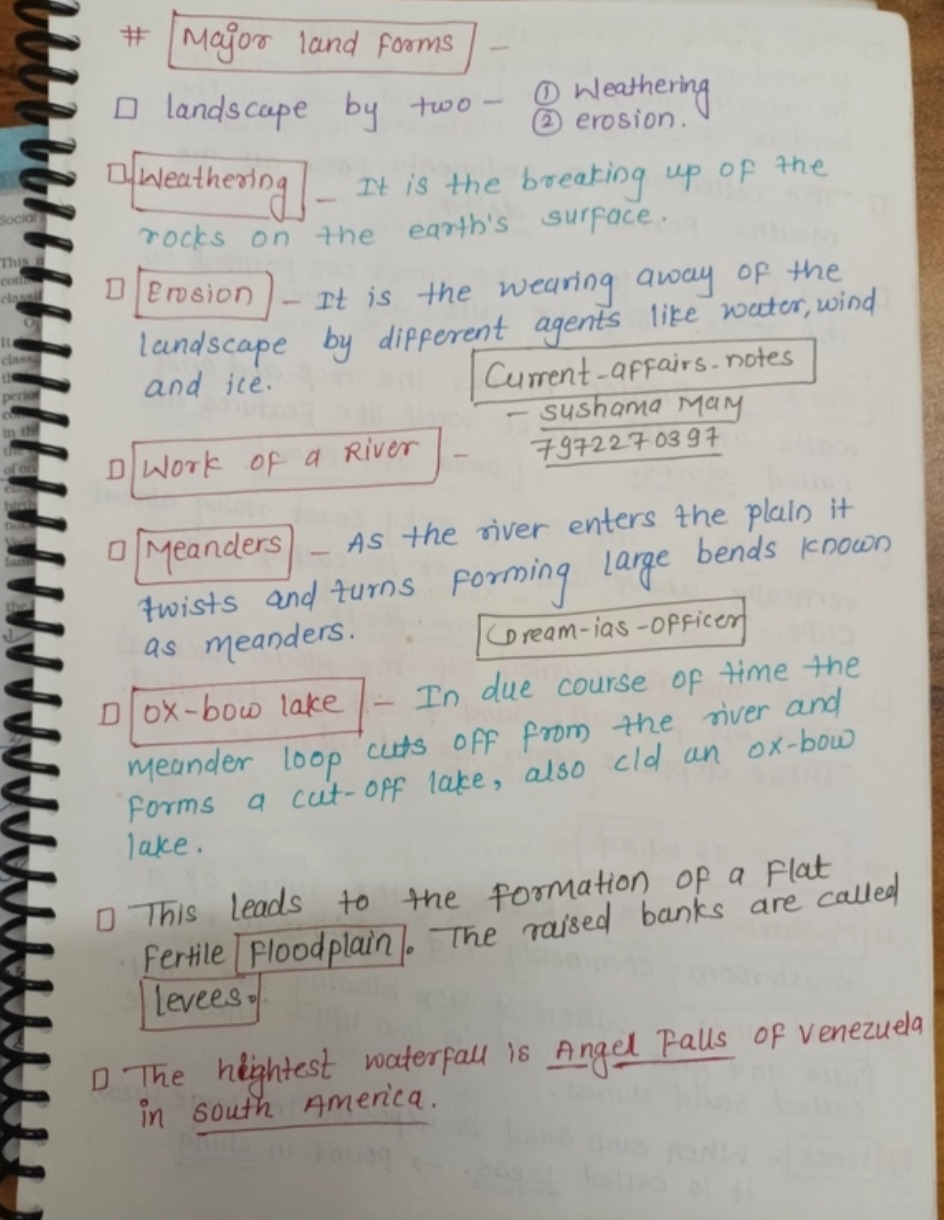 # Major land forms –
landscape by two – ① Weathering
② erosion.
Weathering – It is the breaking up of the
rocks on the earth's surface.
Erosion – It is the wearing away of the
landscape by different agents like water, wind
and ice.
Current-affairs-notes
– sushama May
7972270397
Work of a River –
Meanders – As the river enters the plain it
twists and turns forming large bends known
as meanders.
Dream-ias-officer
ox-bow lake – In due course of time the
meander loop cuts off from the river and
forms a cut-off lake, also cld an ox-bow
lake.
This leads to the formation of a flat
fertile floodplain. The raised banks are called
levees.
The hightest waterfall is Angel Falls of Venezuela
in south America.